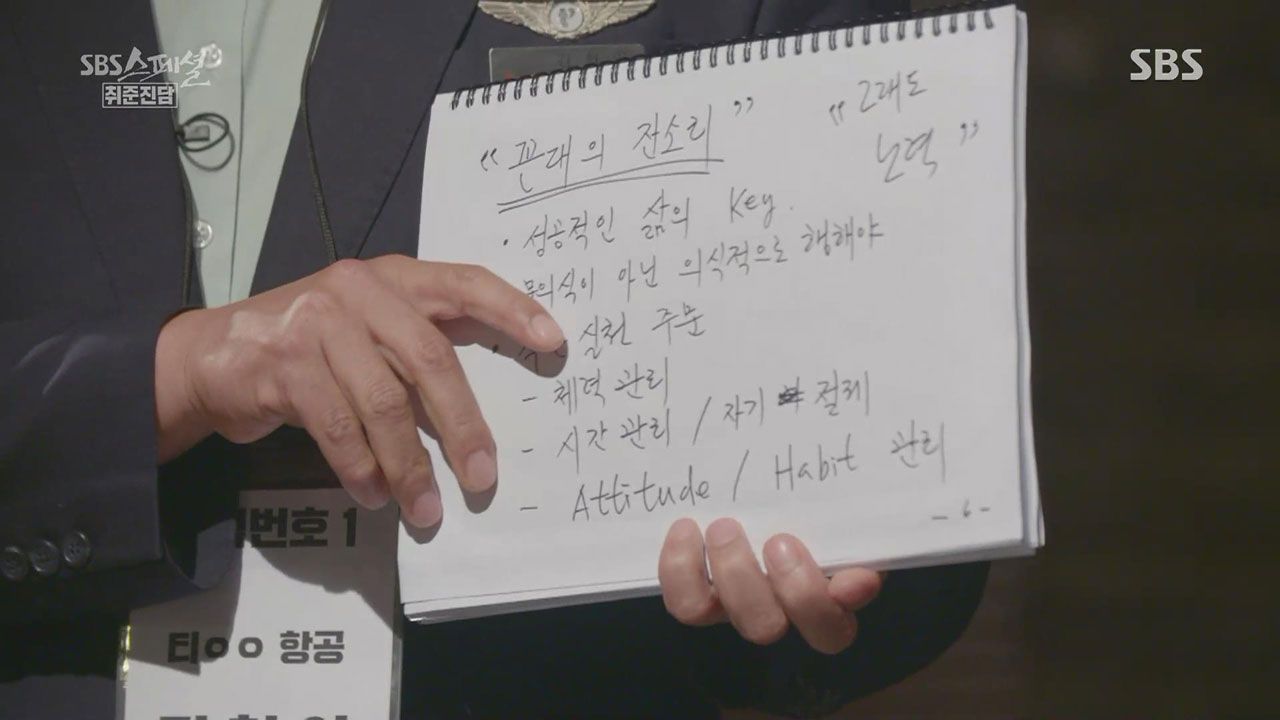 SBS 스페셜
취준진담
SBS
“꼰대의 잔소리”
“그래도
노력”
· 성공적인 삶의 Key.
무의식이 아닌 의식적으로 행해야
· 실천 주문
- 체력 관리
- 시간 관리 / 자기 절레
- Attitude / Habit 관리
- 6 -
번호 1
티ㅇㅇ 항공